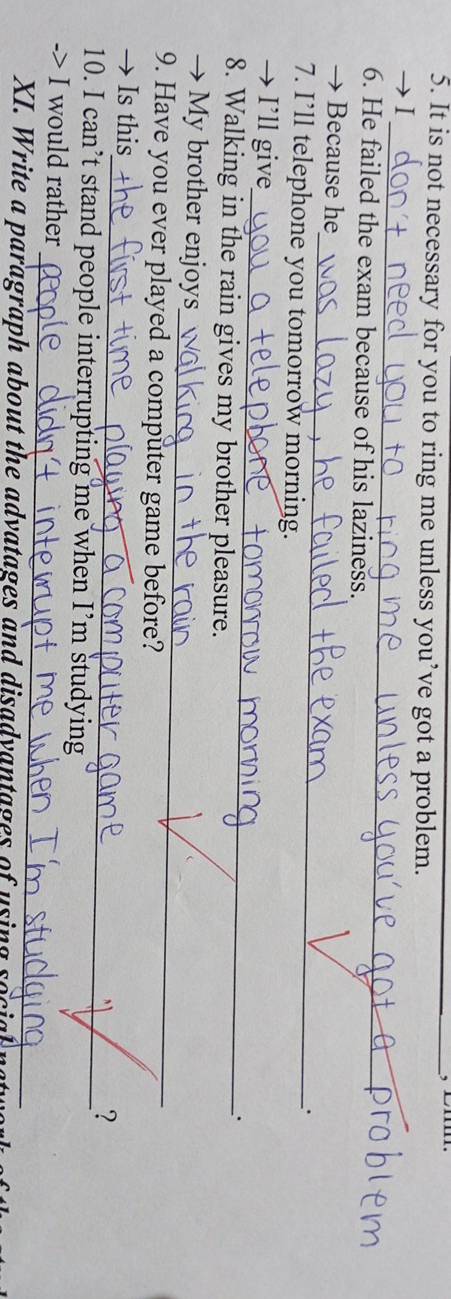 5. It is not necessary for you to ring me unless you've got a problem.
→ I don't need you to ring me unless you've got a problem
6. He failed the exam because of his laziness.
→ Because he was lazy, he failed the exam.
7. I'll telephone you tomorrow morning.
→ I'll give you a telephone tomorrow morning.
8. Walking in the rain gives my brother pleasure.
→ My brother enjoys walking in the rain
9. Have you ever played a computer game before?
→ Is this the first time playing a computer game?
10. I can't stand people interrupting me when I'm studying
-> I would rather people didn't interrupt me when I'm studying
XI. Write a paragraph about the advatages and disadvantages of using social